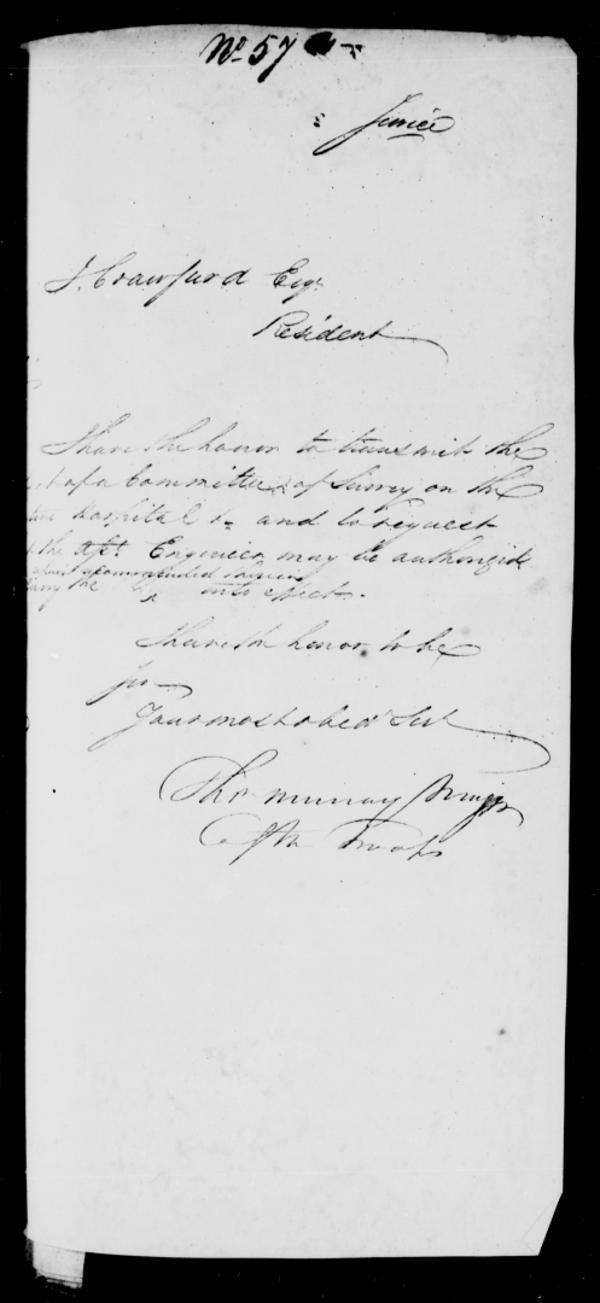 No 57
J. Crawfurd Esqr.
Resident
I have the honor to transmit the
of a Committee of Survey on the
Hospital &c and to request
the Asst. Engineer may be authorized
recommended therein
the into effect.
I have the honor to be
Sir
Your most obedt Servt
Thos Murray
of the Troops